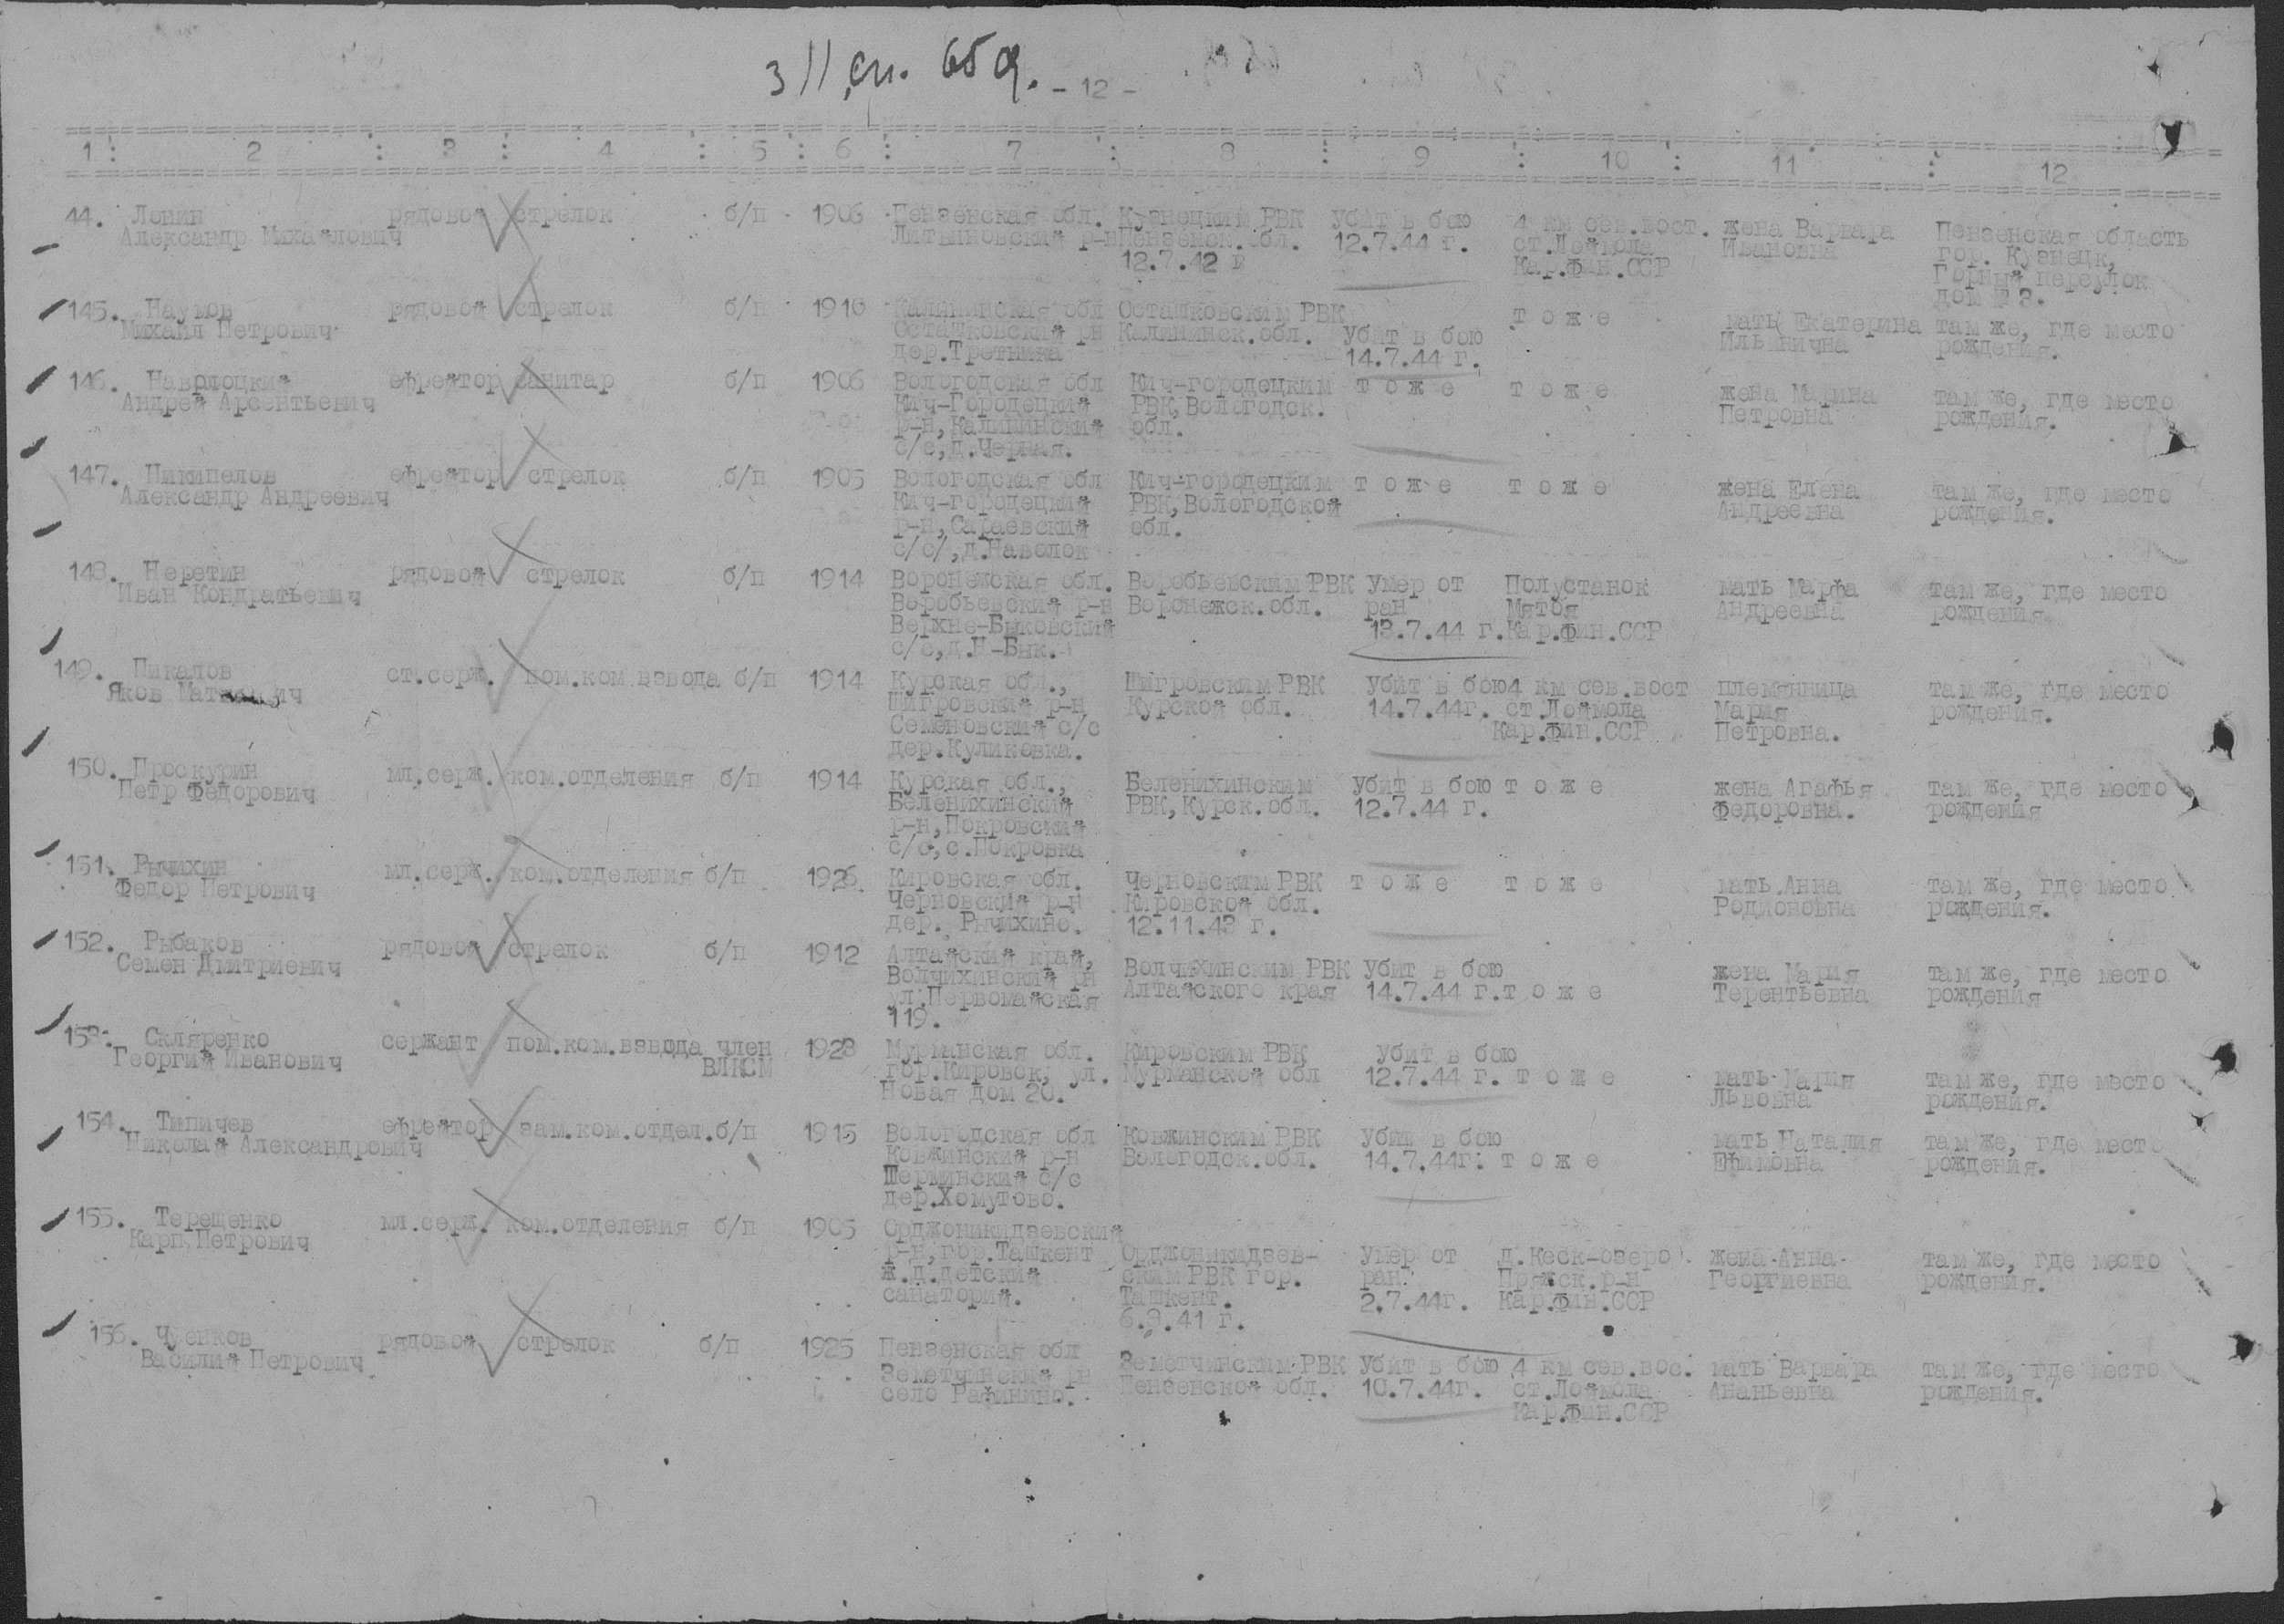 311 сп. 65 д. - 12 -
1 : 2 : 3 : 4 : 5 : 6 : 7 : 8 : 9 : 10 : 11 : 12
44. Ленин рядовой стрелок б/п 1906 Пензенская обл. Кузнецким РВК убит в бою 4 км сев.вост. жена Варвара Пензенская область
Александр Михайлович Литвиновский р-н Пензенск.обл. 12.7.44 г. ст.Лоймола Ивановна гор. Кузнецк,
12.7.42 г Кар.Фин.ССР Горный переулок
дом № 3.
145. Наумов рядовой стрелок б/п 1910 Калининская обл Осташковским РВК т о ж е мать Екатерина там же, где место
Михаил Петрович Осташковский рн Калининск.обл. убит в бою Ильинична рождения.
дер.Третники 14.7.44 г.
146. Наврлоцкий ефрейтор санитар б/п 1906 Вологодская обл Кич-городецким т о ж е т о ж е жена Марина там же, где место
Андрей Арсентьевич Кич-Городецкий РВК,Вологодск. Петровна рождения.
р-н,Калининский обл.
с/с,д.Черная.
147. Никипелов ефрейтор стрелок б/п 1905 Вологодская обл Кич-городецким т о ж е т о ж е жена Елена там же, где место
Александр Андреевич Кич-городецкий РВК,Вологодской Андреевна рождения.
р-н,Сараевский обл.
с/с/,д.Наволок
148. Неретин рядовой стрелок б/п 1914 Воронежская обл. Воробьевским РВК умер от Полустанок мать Марфа там же, где место
Иван Кондратьевич Воробьевский р-н Воронежск.обл. ран Мятоя Андреевна рождения
Верхне-Быковский 13.7.44 г. Кар.Фин.ССР
с/с,д.Н-Бык.
149. Пикалов ст.серж. пом.ком.взвода б/п 1914 Курская обл., Щигровским РВК убит в бою 4 км сев.вост племянница там же, где место
Яков Щигровский р-н Курской обл. 14.7.44г. ст.Лоймола Мария рождения.
Семеновский с/с Кар.Фин.ССР Петровна.
дер.Куликовка.
150. Проскурин мл.серж. ком.отделения б/п 1914 Курская обл., Беленихинским убит в бою т о ж е жена Агафья там же, где место
Петр Федорович Беленихинский РВК,Курск.обл. 12.7.44 г. Федоровна. рождения
р-н,Покровский
с/с,с.Покровка
151. Рычихин мл.серж. ком.отделения б/п 1926 Кировская обл. Черновским РВК т о ж е т о ж е мать Анна там же, где место
Федор Петрович Черновский р-н Кировской обл. Родионовна рождения.
дер. Рычихино. 12.11.43 г.
152. Рыбаков рядовой стрелок б/п 1912 Алтайский край, Волчихинским РВК убит в бою жена Мария там же, где место
Семен Дмитриевич Волчихинский рн Алтайского края 14.7.44 г. т о ж е Терентьевна рождения
ул.Первомайская
119.
153. Скляренко сержант пом.ком.взвода член 1923 Мурманская обл. Кировским РВК убит в бою
Георгий Иванович ВЛКСМ гор.Кировск, ул. Мурманской обл 12.7.44 г. т о ж е мать Мария там же, где место
Новая дом 20. Львовна рождения.
154. Типичев ефрейтор зам.ком.отдел. б/п 1915 Вологодская обл Ковжинским РВК убит в бою мать Наталия там же, где место
Николай Александрович Ковжинский р-н Вологодск.обл. 14.7.44г. т о ж е Ефимовна рождения.
Шерминский с/с
дер.Хомутово.
155. Терещенко мл.серж. ком.отделения б/п 1905 Орджоникидзевский
Карп Петрович р-н,гор.Ташкент Орджоникидзев- умер от д.Кеск-озеро жена Анна там же, где место
ж.д.детский ским РВК гор. ран Пряжск.р-н Георгиевна рождения.
санаторий. Ташкент. 2.7.44г. Кар.Фин.ССР
6.9.41 г.
156. Чуенков рядовой стрелок б/п 1925 Пензенская обл
Василий Петрович Земетчинский рн Земетчинским РВК убит в бою 4 км сев.вос. мать Варвара там же, где место
село Рафинино. Пензенской обл. 10.7.44г. ст.Лоймола Ананьевна рождения.
Кар.Фин.ССР